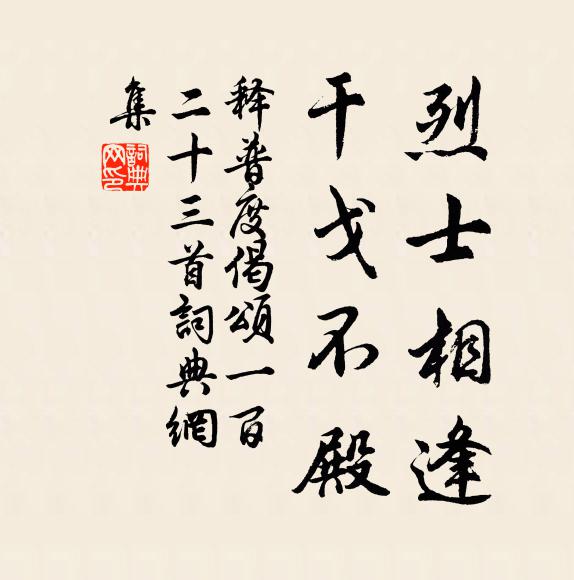 烈士相逢
干戈不殿
释普度偈頌一百
二十三首詞典網
集
詞典網印